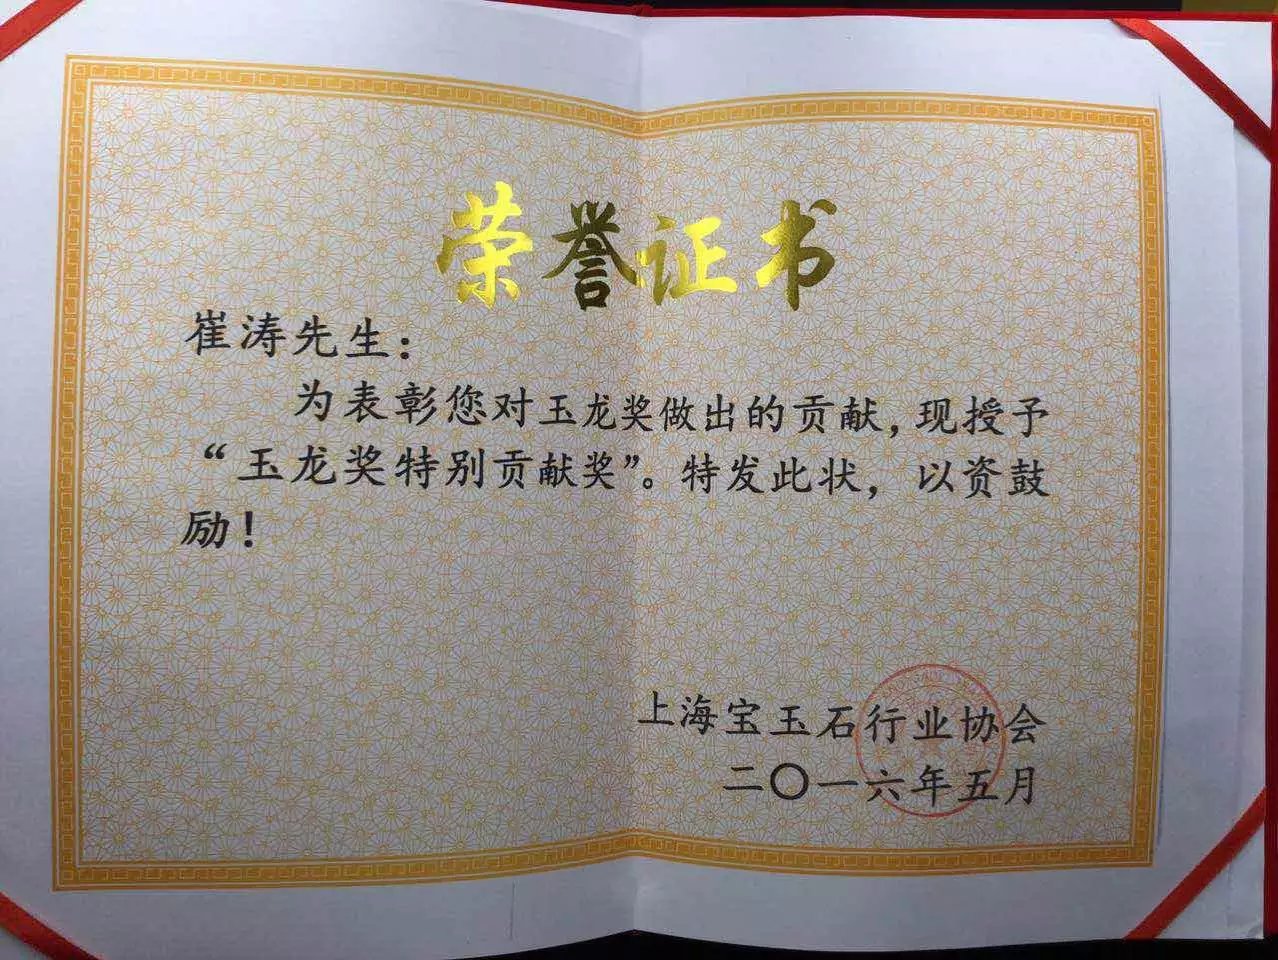 荣誉证书
崔涛先生：
为表彰您对玉龙奖做出的贡献，现授予
“玉龙奖特别贡献奖”。特发此状，以资鼓
励！
上海宝玉石行业协会
二〇一六年五月